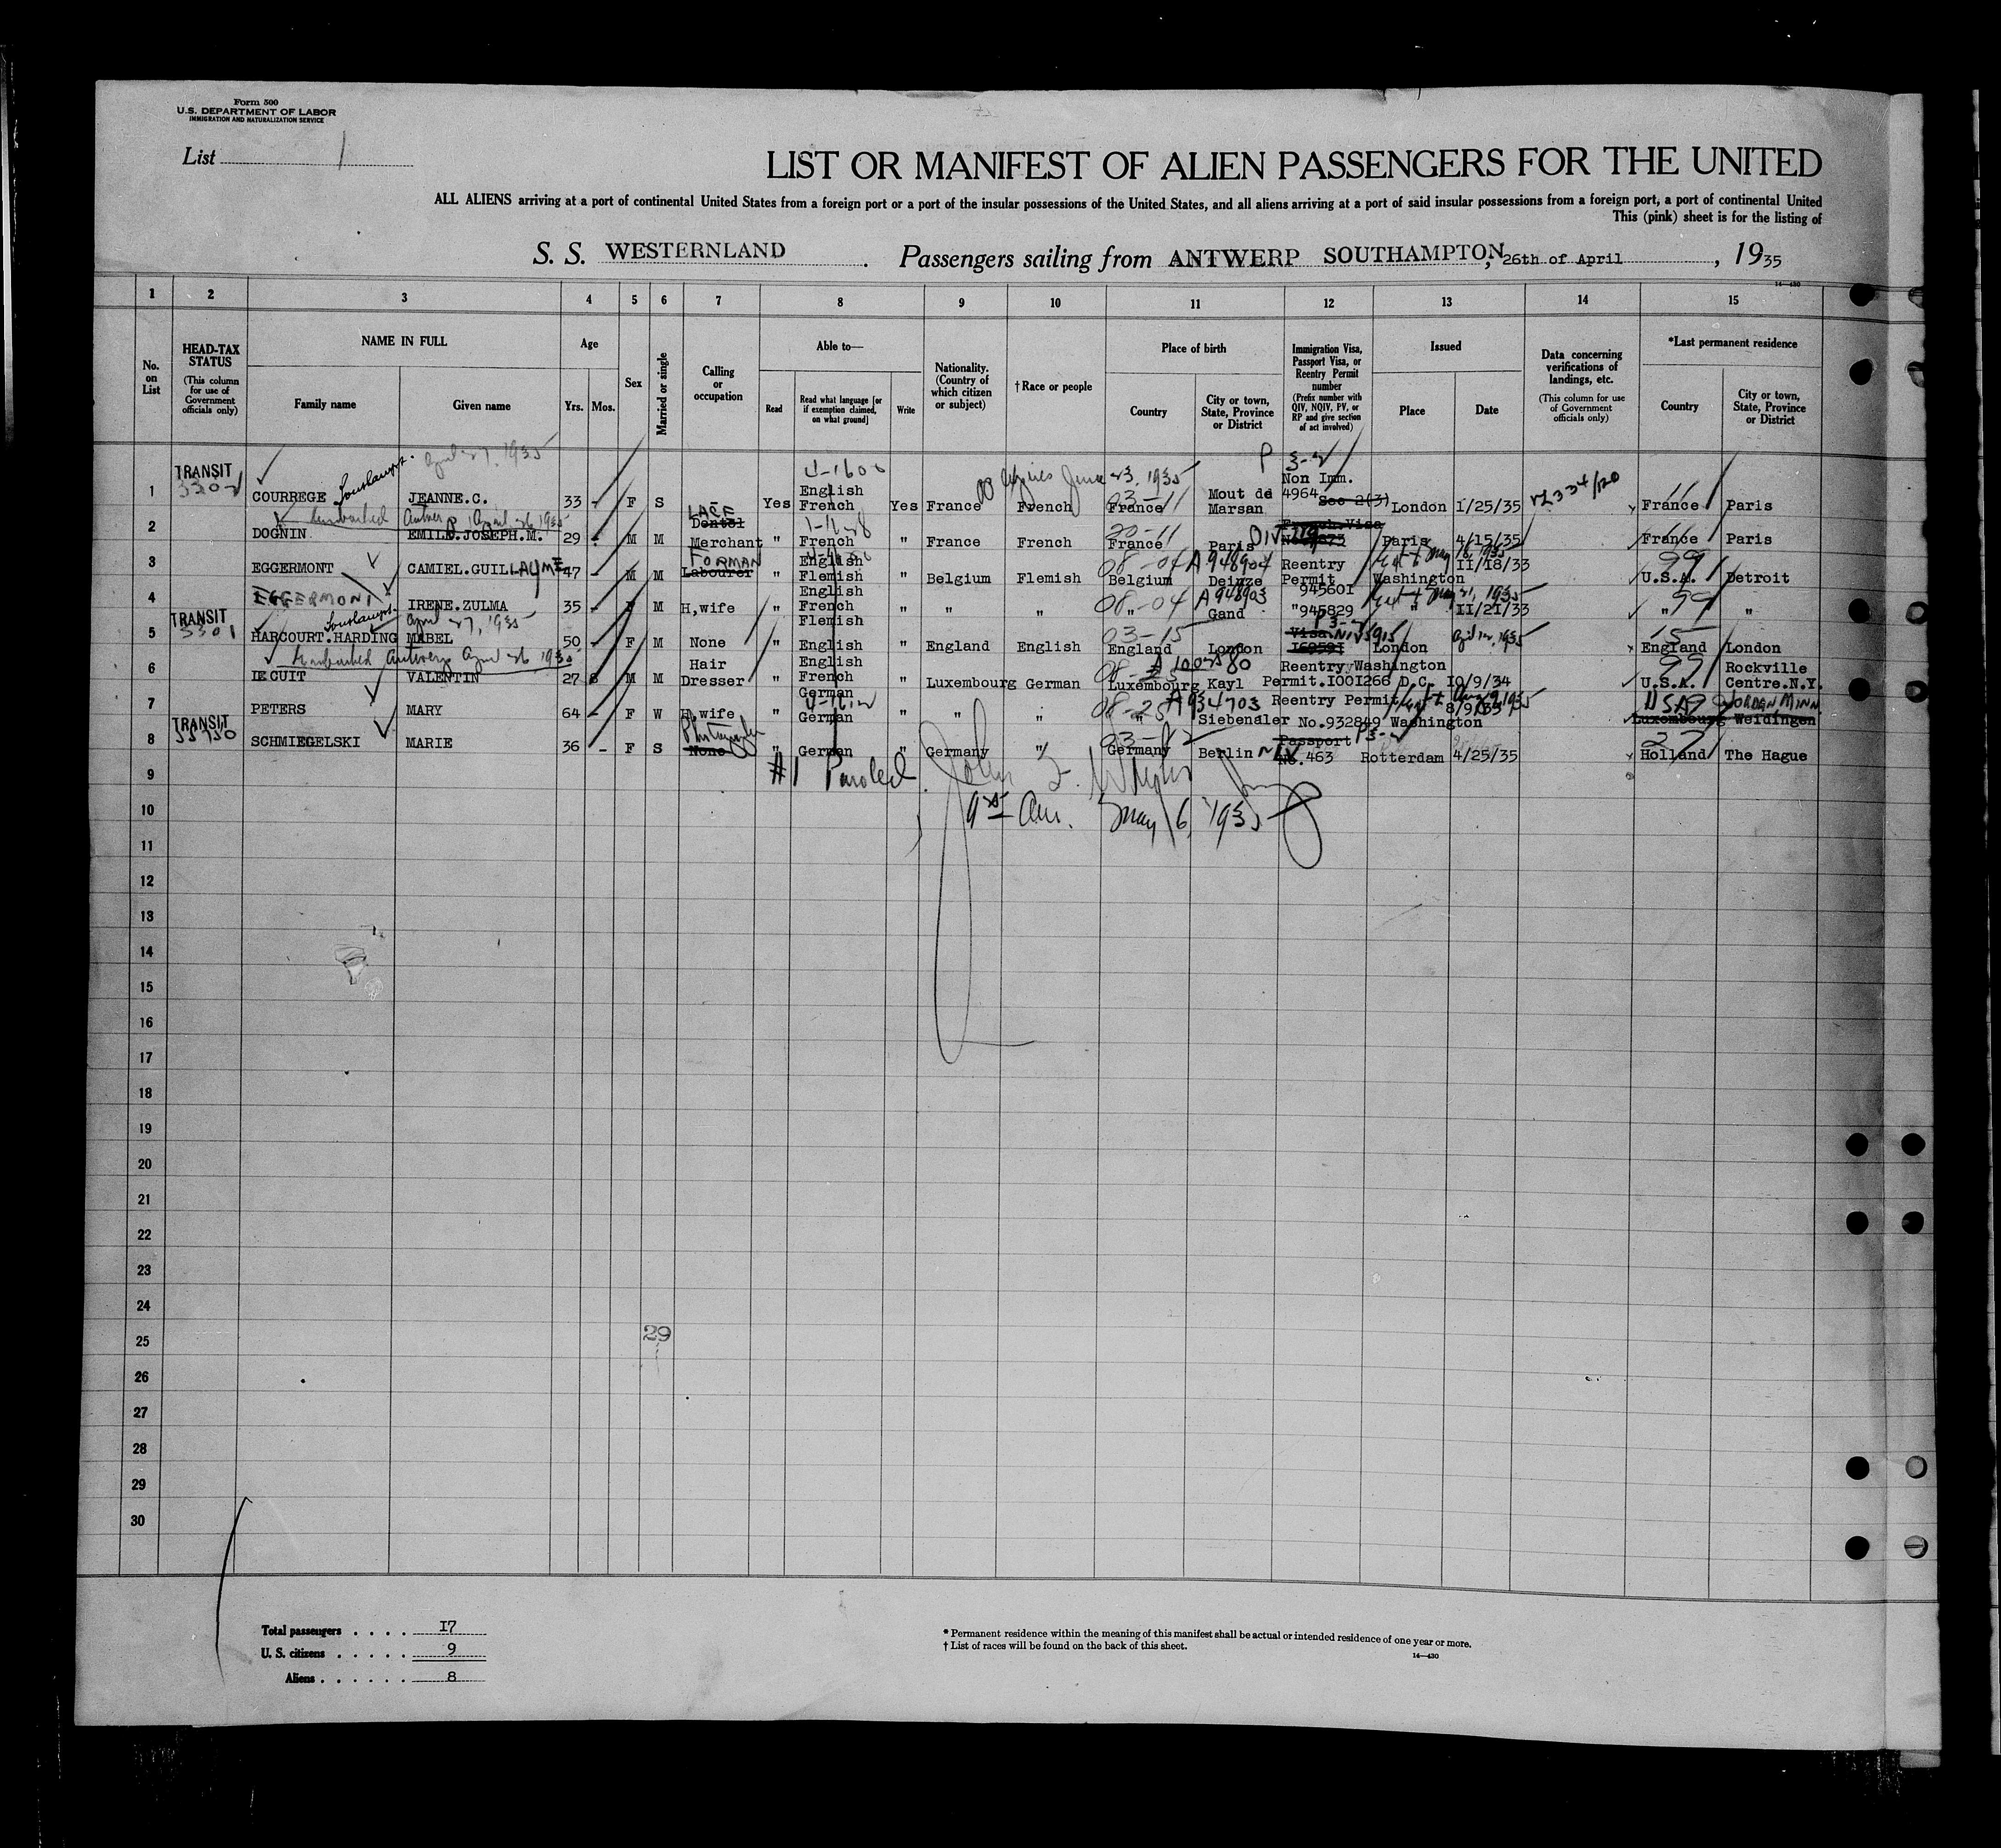 Form 500
U.S. DEPARTMENT OF LABOR
IMMIGRATION AND NATURALIZATION SERVICE
List 1
LIST OR MANIFEST OF ALIEN PASSENGERS FOR THE UNITED
ALL ALIENS arriving at a port of continental United States from a foreign port or a port of the insular possessions of the United States, and all aliens arriving at a port of said insular possessions from a foreign port, a port of continental United
This (pink) sheet is for the listing of
S. S. WESTERNLAND . Passengers sailing from ANTWERP SOUTHAMPTON, 26th of April , 1935
14-430
1 2 3 4 5 6 7 8 9 10 11 12 13 14 15
No. on List
HEAD-TAX STATUS (This column for use of Government officials only)
NAME IN FULL Family name Given name
Age Yrs. Mos.
Sex
Married or single
Calling or occupation
Able to— Read Read what language [or if exemption claimed, on what ground] Write
Nationality. (Country of which citizen or subject)
† Race or people
Place of birth Country City or town, State, Province or District
Immigration Visa, Passport Visa, or Reentry Permit number (Prefix number with QIV, NQIV, PV, or RP and give section of act involved)
Issued Place Date
Data concerning verifications of landings, etc. (This column for use of Government officials only)
*Last permanent residence Country City or town, State, Province or District
April 27, 1935 4-1600 P 3-2
TRANSIT English Expires June 23, 1935 03-11 Non Imm. 11
1 COURREGE JEANNE.C. 33 - F S Yes English French Yes France French France Mout de Marsan 4964 Sec 2(3) London 1/25/35 France Paris
Embarked Antwerp April 26 1935
2 DOGNIN EMILE.JOSEPH.M. 29 - M M LACE Dentel Merchant " French " France French 20-11 France Paris French Visa Paris 4/15/35 France Paris
3 EGGERMONT CAMIEL.GUILLAUME 47 - M M FORMAN Labourer " English Flemish " Belgium Flemish 08-04 A948904 Belgium Deinze Reentry Permit 945601 Washington 11/18/33 99 U.S.A. Detroit
4 EGGERMONT IRENE.ZULMA 35 - F M H,wife " English French Flemish " " " 08-04 A948903 " Gand "945829 " 11/21/33 99 " "
TRANSIT 3301 April 27, 1935
5 HARCOURT.HARDING MABEL 50 - F M None " English " England English 03-15 England London P 3-2 Visa London 15 England London
Embarked Antwerp April 26 1935
6 LECUIT VALENTIN 27 6 M M Hair Dresser " English French German " Luxembourg German Luxembourg Kayl Reentry Permit.1001266 Washington D.C. 10/9/34 99 U.S.A. Rockville Centre.N.Y.
7 PETERS MARY 64 - F W H,wife " German " " " 08-25 A934703 " Siebenaler Reentry Permit No.932849 Washington 8/9/33 USA JORDAN MINN. Luxembourg Weidingen
TRANSIT
8 SCHMIEGELSKI MARIE 36 - F S Photographer None " German " Germany " Germany Berlin Passport P3-2 No.463 Rotterdam 4/25/35 27 Holland The Hague
9 #1 Paroled
10 May 6, 1935
11
12
13
14
15
16
17
18
19
20
21
22
23
24
25 29
26
27
28
29
30
Total passengers . . . . 17
U.S. citizens . . . . . 9
Aliens . . . . . . 8
* Permanent residence within the meaning of this manifest shall be actual or intended residence of one year or more.
† List of races will be found on the back of this sheet.
14-430